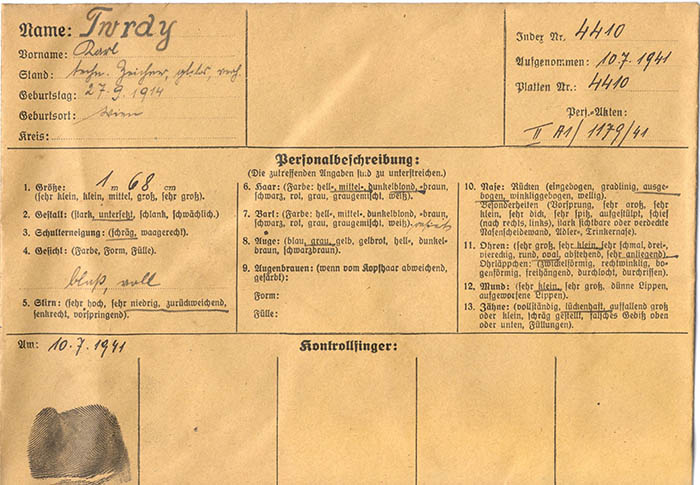 Name: Twrdy
Vorname: Karl
Stand: techn. Zeichner,
Geburtstag: 27.9.1914
Geburtsort: Wien
Kreis:
Index Nr. 4410
Aufgenommen: 10.7.1941
Platten Nr.: 4410
Pers.-Akten:
II A1/1179/41
Personalbeschreibung:
(Die zutreffenden Angaben sind zu unterstreichen.)
1. Größe: 1 m 68 cm
(sehr klein, klein, mittel, groß, sehr groß).
2. Gestalt: (stark, untersetzt, schlank, schwächlich.)
3. Schulterneigung: (schräg, waagerecht).
4. Gesicht: (Farbe, Form, Fülle).
blaß, voll
5. Stirn: (sehr hoch, sehr niedrig, zurückweichend,
senkrecht, vorspringend).
6. Haar: (Farbe: hell-, mittel-, dunkelblond, -braun,
schwarz, rot, grau, graugemischt, weiß).
7. Bart: (Farbe: hell-, mittel-, dunkelblond, -braun,
schwarz, rot, grau, graugemischt, weiß).
8. Auge: (blau, grau, gelb, gelbrot, hell-, dunkel-
braun, schwarzbraun).
9. Augenbrauen: (wenn vom Kopfhaar abweichend,
gefärbt):
Form:
Fülle:
10. Nase: Rücken (eingebogen, gradlinig, ausge-
bogen, winkliggebogen, wellig).
Besonderheiten (Vorsprung, sehr groß, sehr
klein, sehr dick, sehr spitz, aufgestülpt, schief
(nach rechts, links), stark sichtbare oder verdeckte
Nasenscheidewand, Adler-, Trinkernase).
11. Ohren: (sehr groß, sehr klein, sehr schmal, drei-,
viereckig, rund, oval, abstehend, sehr anliegend).
Ohrläppchen: (zwickelförmig, rechtwinklig, bo-
genförmig, freihängend, durchlocht, durchrissen).
12. Mund: (sehr klein, sehr groß, dünne Lippen,
aufgeworfene Lippen).
13. Zähne: (vollständig, lückenhaft, auffallend groß
oder klein, schräg gestellt, falsches Gebiß oben
oder unten, Füllungen).
Am: 10.7.1941
Kontrollfinger: